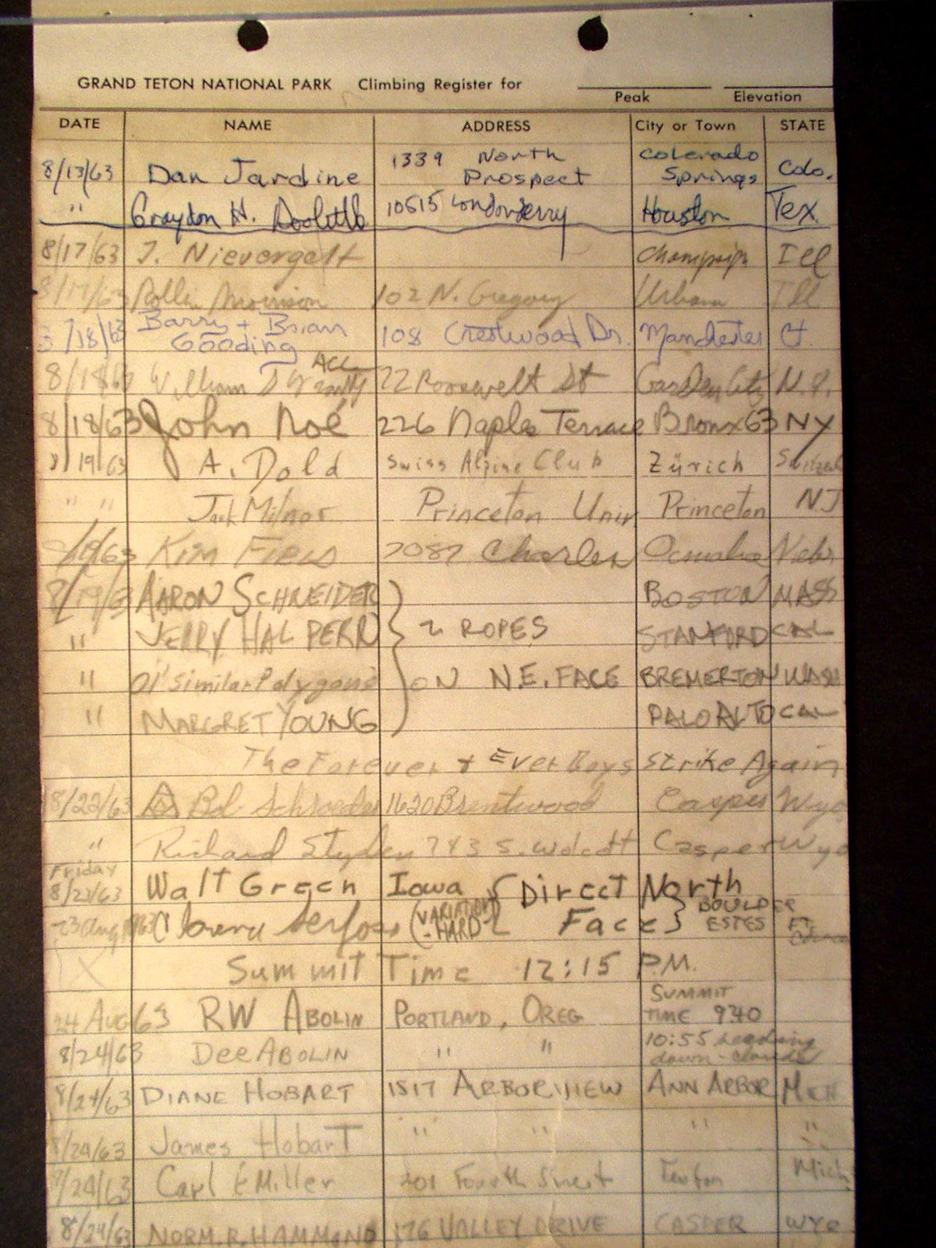 GRAND TETON NATIONAL PARK Climbing Register for
Peak Elevation
DATE NAME ADDRESS City or Town STATE
8/13/63 Dan Jardine 1339 North Prospect Colorado Springs Colo.
" Graydon H. Doolittle 10515 Londonderry Houston Tex.
8/17/63 J. Nievergelt Champaign Ill
8/17/63 Rollin Morrison 102 N. Gregory Urbana Ill
8/18/63 Barry + Brian Gooding 108 Crestwood Dr. Manchester Ct.
8/18/63 William ACC 22 Roosevelt St Garden City N.Y.
8/18/63 John Noé 226 Naples Terrace Bronx 63 NY
19/63 A. Dold Swiss Alpine Club Zürich
" " Jack Milnor Princeton Univ Princeton NJ
8/19/63 Kim 7087 Charles Omaha Nebr
8/19/63 AARON SCHNEIDER BOSTON MASS
" JERRY HALPERN 2 ROPES STANFORD CAL
" Ol' Similar Polygons ON N.E. FACE BREMERTON WASH
" MARGRET YOUNG PALO ALTO CAL
The Forever + Ever Boys Strike Again
8/22/63 Bob Schroeder 1620 Brentwood Casper Wyo
" Richard 743 S. Wolcott Casper Wyo
Friday
8/23/63 Walt Green Iowa { Direct North
23 Aug 1963 (VARIATION - HARD) Face } BOULDER ESTES
Summit Time 12:15 P.M.
24 Aug 63 RW ABOLIN PORTLAND, OREG SUMMIT TIME 940
8/24/63 Dee ABOLIN " " 10:55 heading down - clouds
8/24/63 DIANE HOBART 1517 ARBORVIEW ANN ARBOR MICH
8/24/63 James Hobart " " " "
8/24/63 Carl E Miller 201 Fourth Street Mich
8/24/63 NORM. R. HAMMOND 176 VALLEY DRIVE CASPER WYO